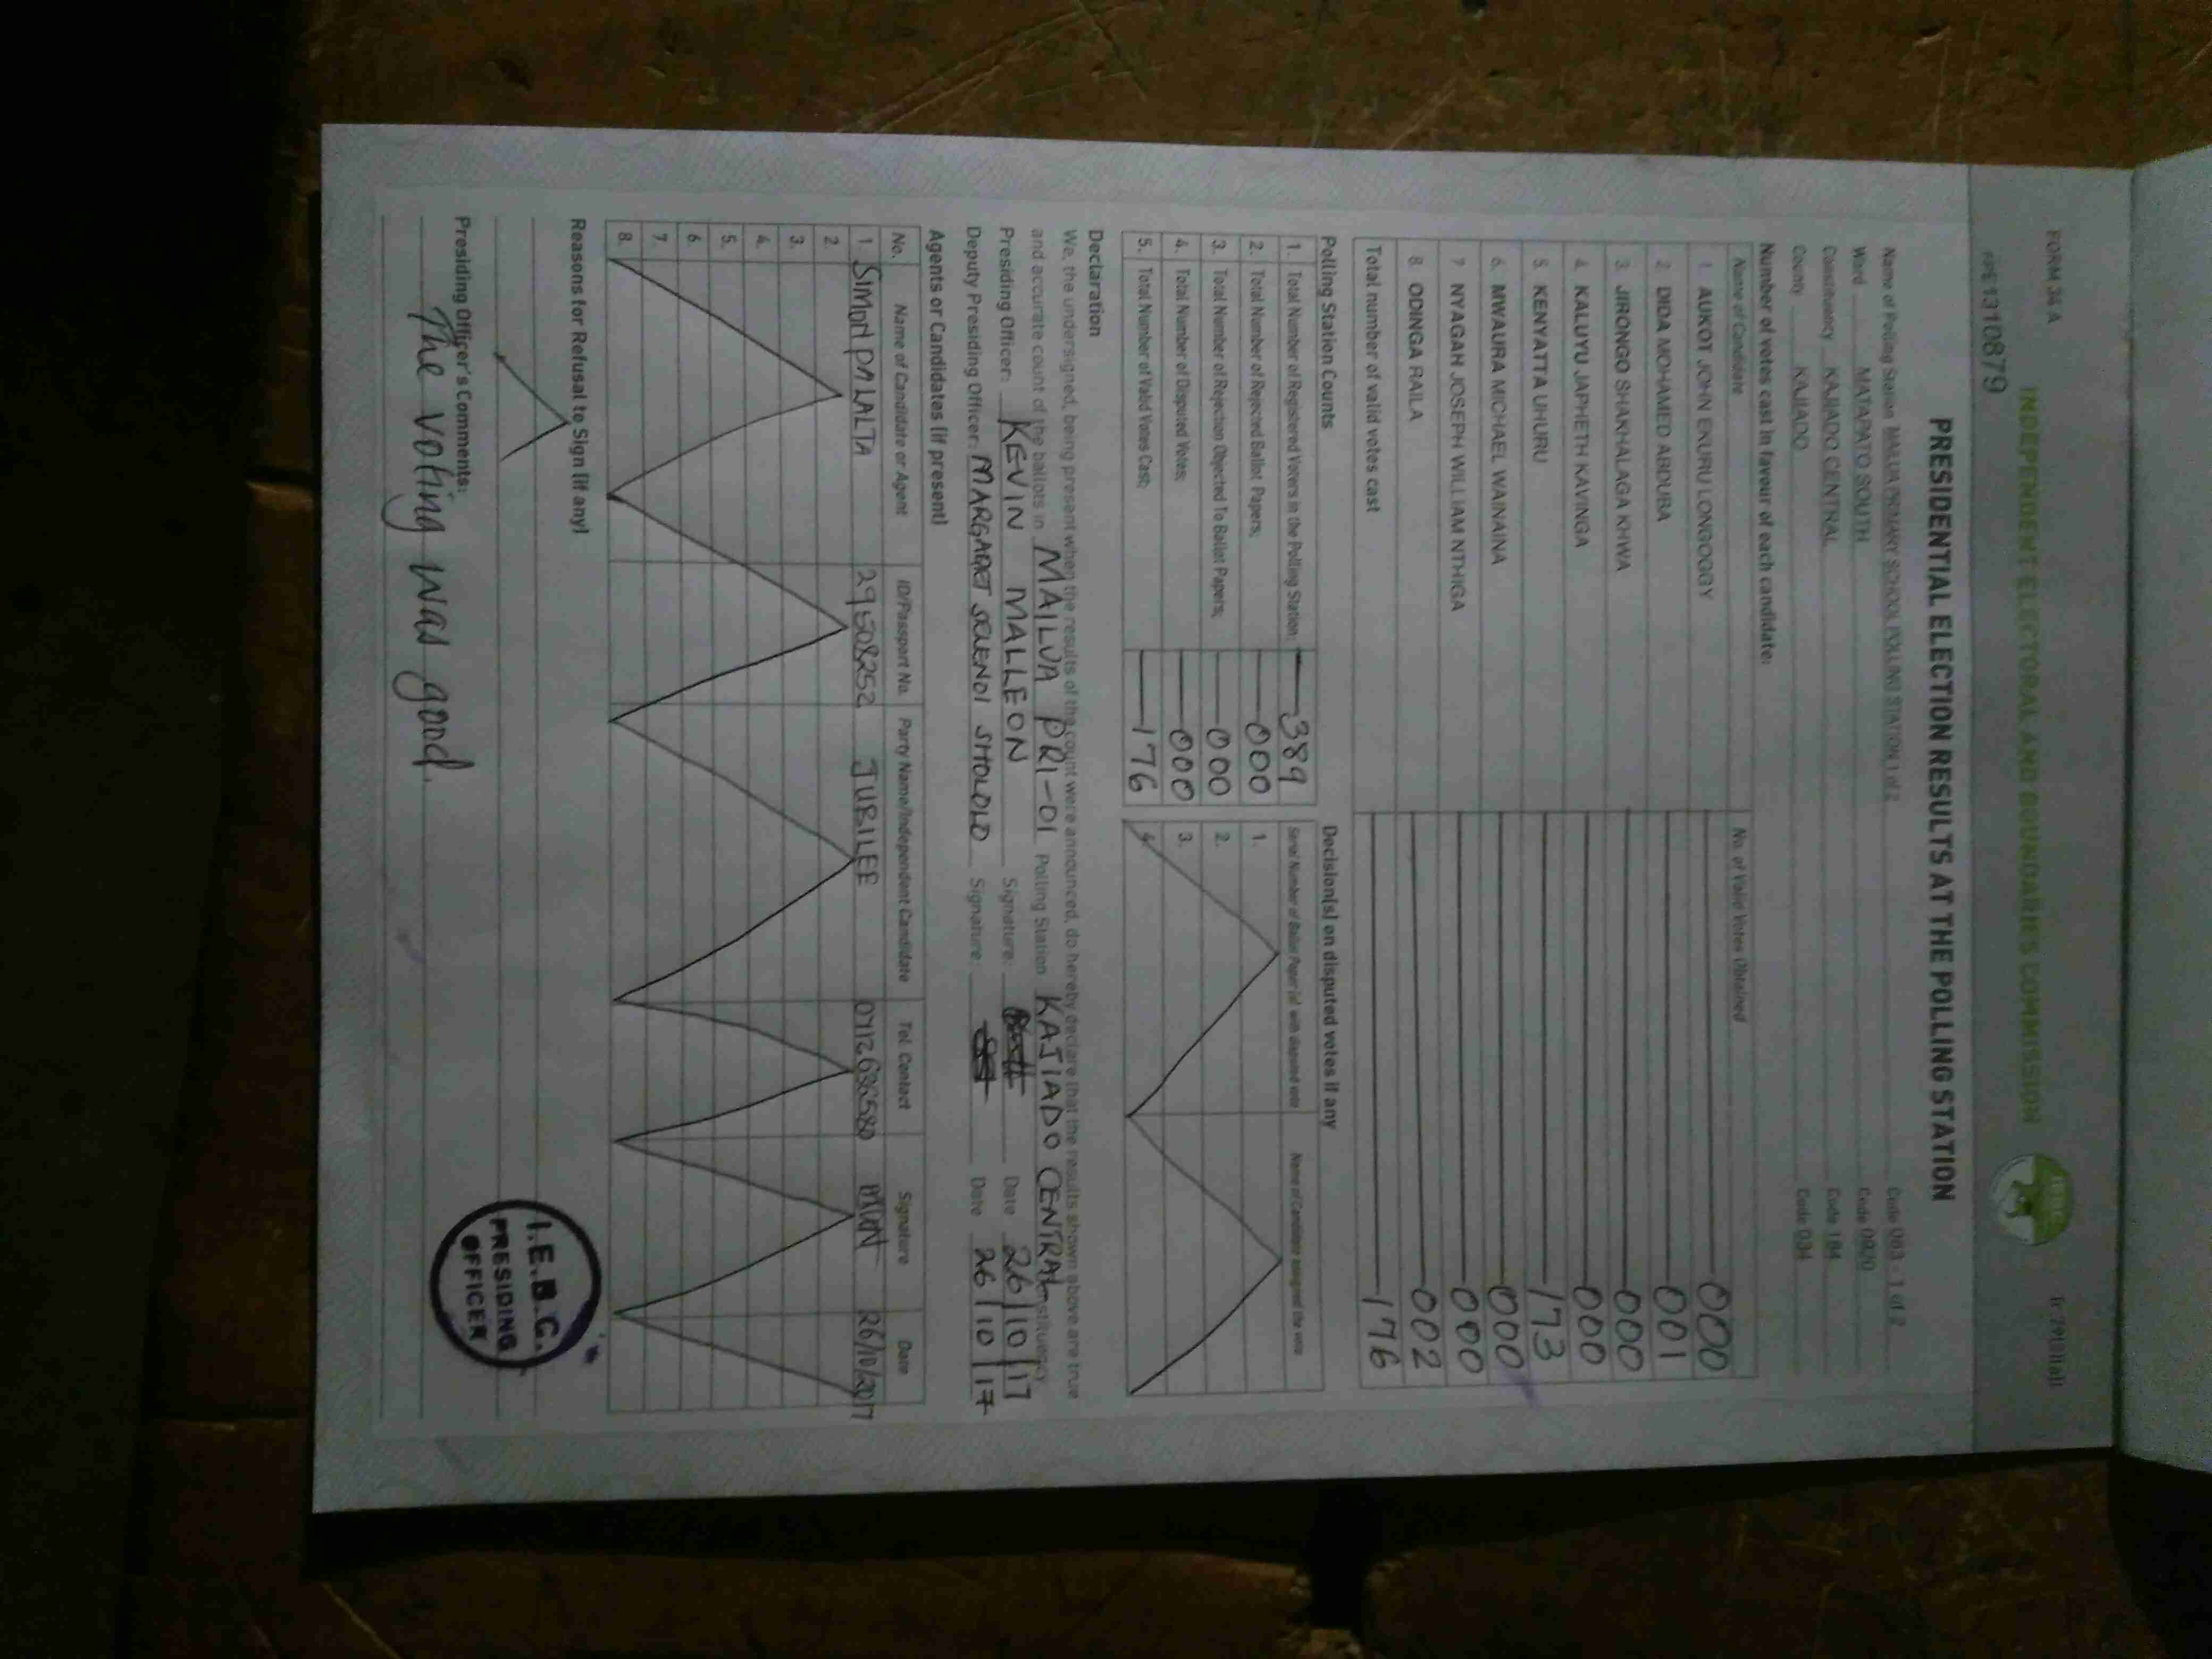 FORM 34A
INDEPENDENT ELECTORAL AND BOUNDARIES COMMISSION
PRESIDENTIAL ELECTION RESULTS AT THE POLLING STATION
Name of Polling Station MAILUA PRIMARY SCHOOL POLLING STATION 1 of 2 Code 083 - 1 of 2
Ward MATAPATO SOUTH Code 0920
Constituency KAJIADO CENTRAL Code 184
County KAJIADO Code 034
Number of votes cast in favour of each candidate:
Name of Candidate No. of Valid Votes Obtained
1. AUKOT JOHN EKURU LONGOGGY 000
2. DIDA MOHAMED ABDUBA 001
3. JIRONGO SHAKHALAGA KHWA 000
4. KALUYU JAPHETH KAVINGA 000
5. KENYATTA UHURU 173
6. MWAURA MICHAEL WAINAINA 000
7. NYAGAH JOSEPH WILLIAM NTHIGA 000
8. ODINGA RAILA 002
Total number of valid votes cast 176
Polling Station Counts
1. Total Number of Registered Voters in the Polling Station; 389
2. Total Number of Rejected Ballot Papers; 000
3. Total Number of Rejection Objected To Ballot Papers; 000
4. Total Number of Disputed Votes; 000
5. Total Number of Valid Votes Cast; 176
Decision(s) on disputed votes if any
Serial Number of Ballot Paper (s) with disputed vote Name of Candidate assigned the vote
1.
2.
3.
4.
Declaration
We, the undersigned, being present when the results of the count were announced, do hereby declare that the results shown above are true
and accurate count of the ballots in MAILUA PRI-01 Polling Station KAJIADO CENTRAL Constituency
Presiding Officer: KEVIN MALLEON Signature: Date 26/10/17
Deputy Presiding Officer: MARGARET Signature: Date 26/10/17
Agents or Candidates (if present)
No. Name of Candidate or Agent ID/Passport No. Party Name/Independent Candidate Tel. Contact Signature Date
1. SIMON PALALTA 29508252 JUBILEE 0712636580 26/10/2017
2.
3.
4.
5.
6.
7.
8.
Reasons for Refusal to Sign (if any)
Presiding Officer's Comments:
The voting was good.
I.E.B.C.
PRESIDING
OFFICER